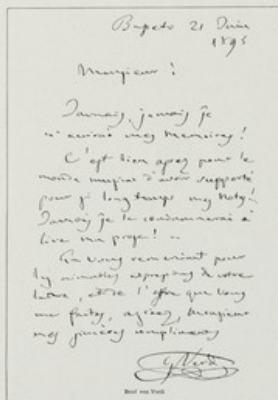 Busseto 21 Juin
1895
Monsieur!
Jamais, jamais je
n'écrirai mes Memoires!
C'est bien assez pour le
monde musical d'avoir supporté
pour si longtemps mes Notes!..
Jamais je le condamnerai à
lire ma prose! ..
En vous remerciant pour
les aimables expressions de votre
lettre, et de l'offre que vous
me faites, agréez, Monsieur
mes sincères compliments
G. Verdi
Brief von Verdi